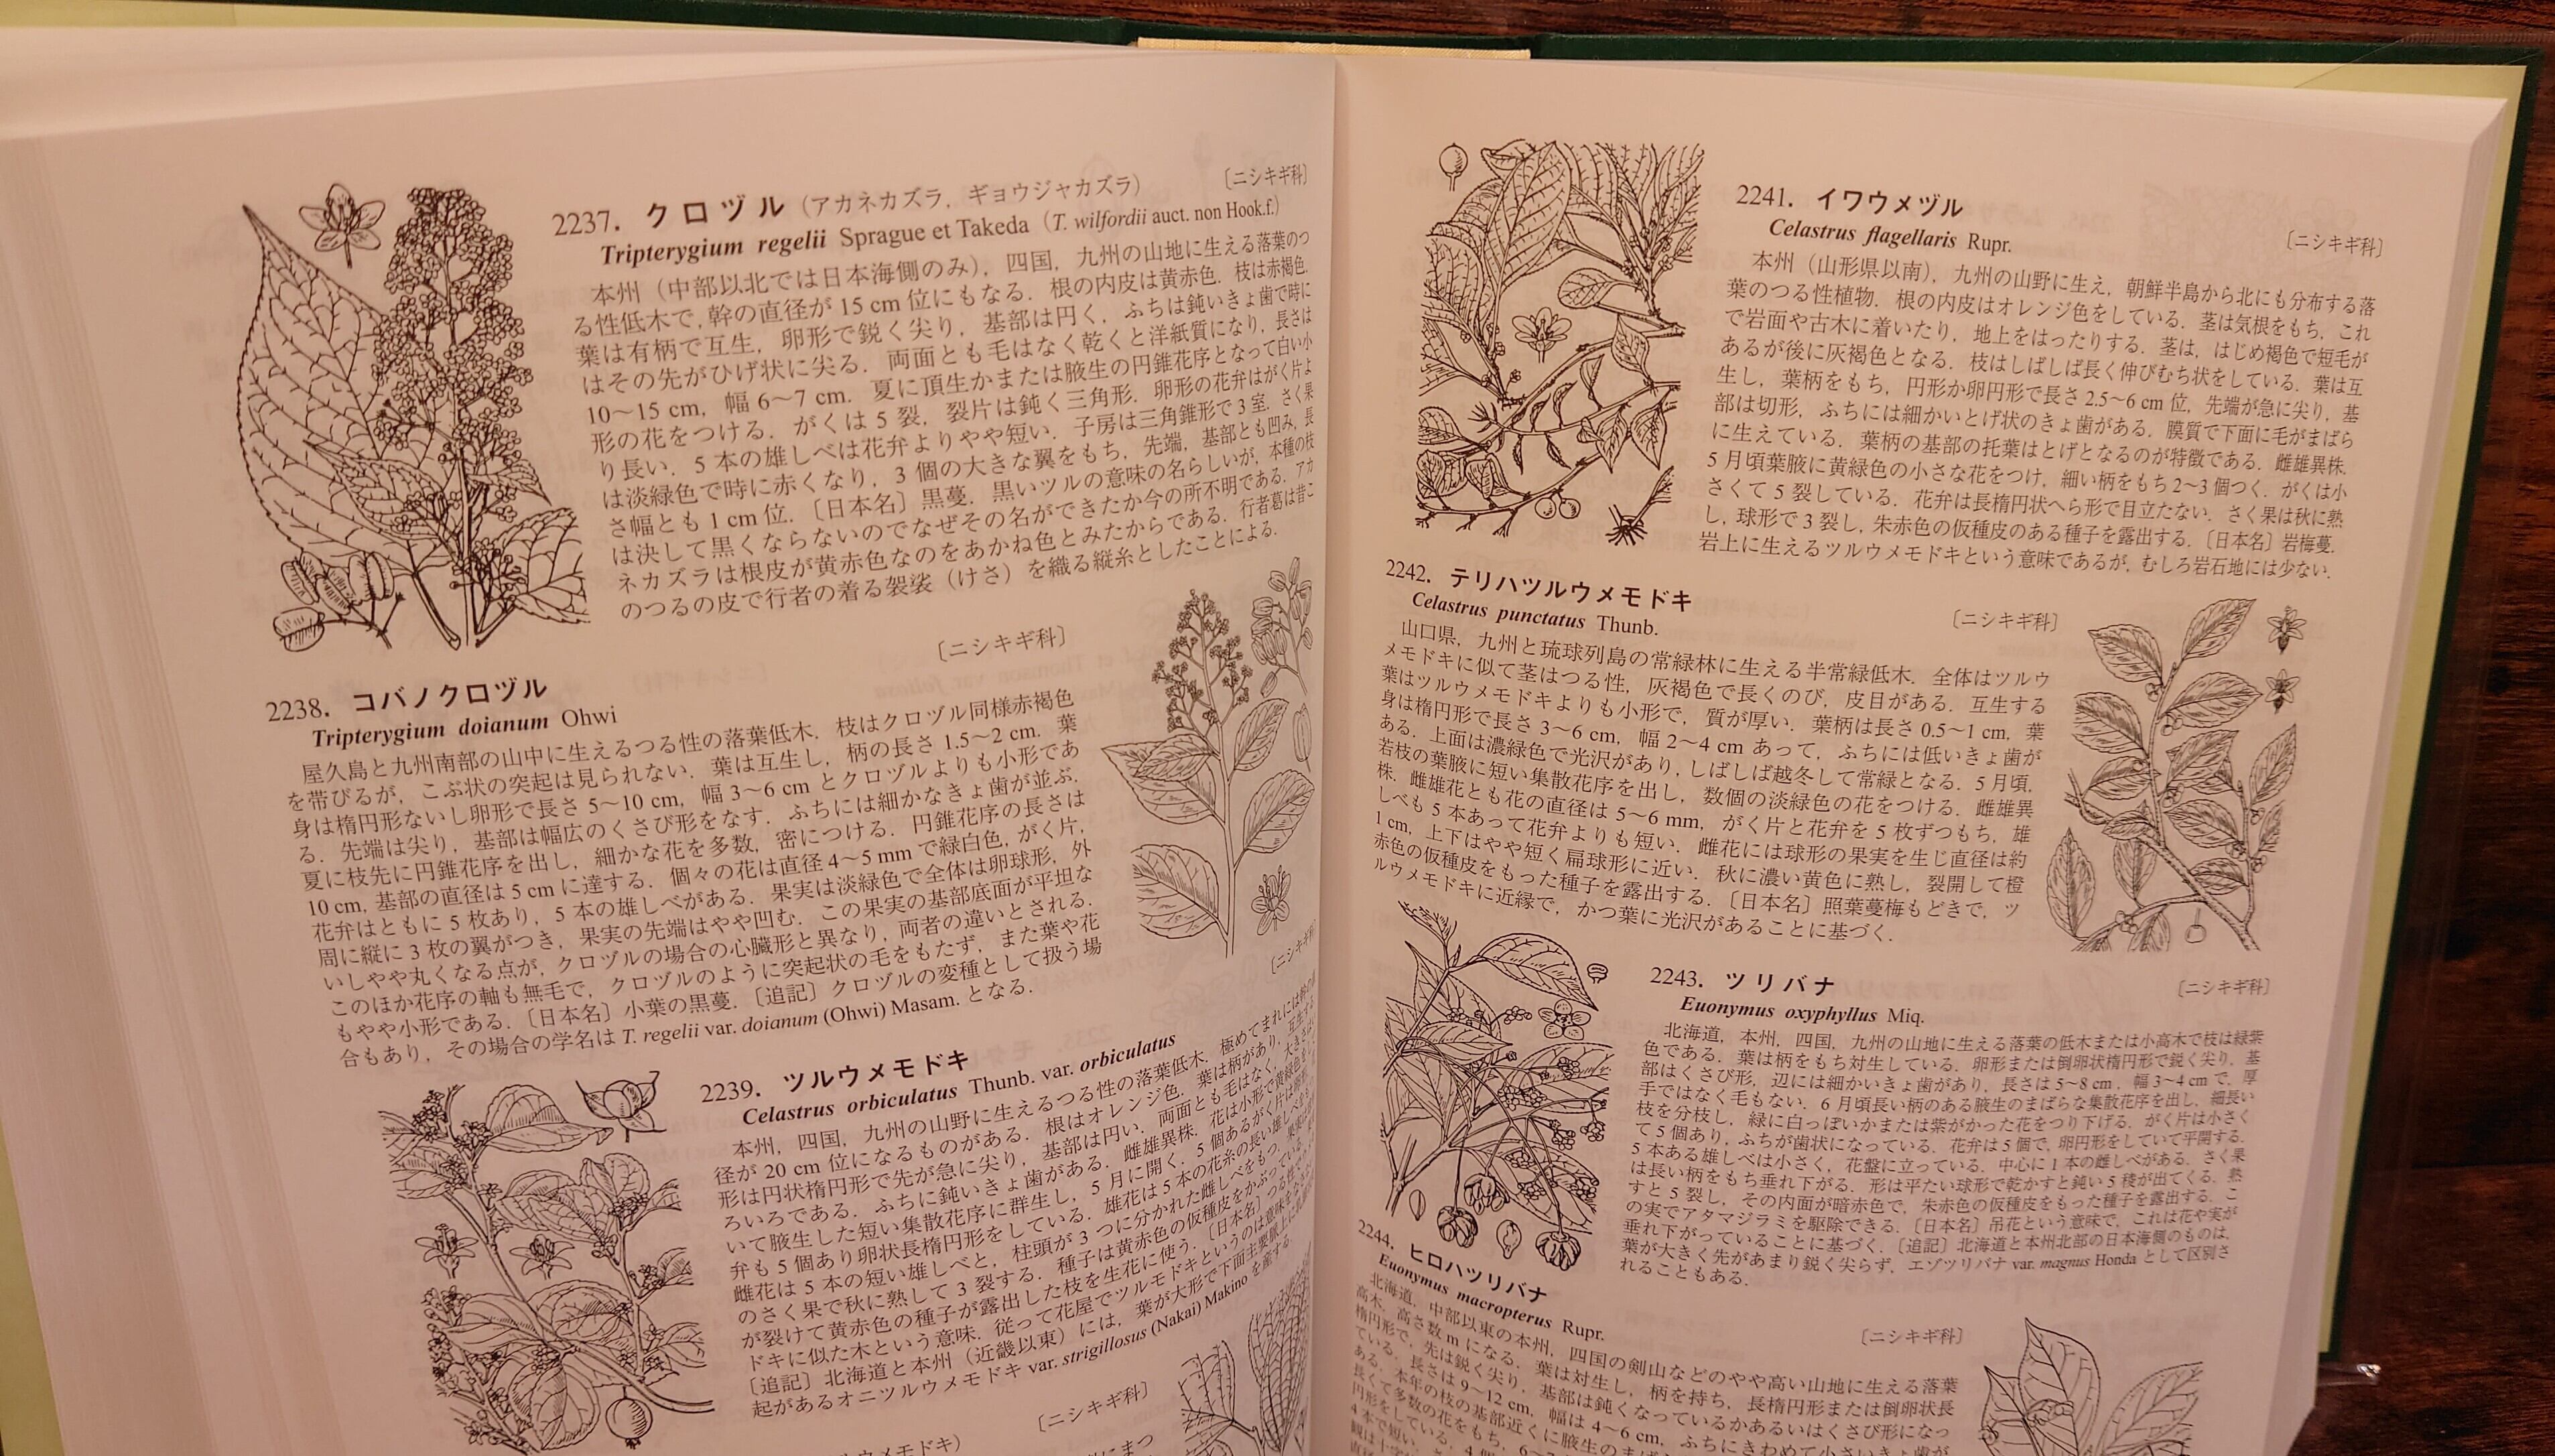 2237. クロヅル（アカネカズラ，ギョウジャカズラ） 〔ニシキギ科〕
Tripterygium regelii Sprague et Takeda (T. wilfordii auct. non Hook.f.)
本州（中部以北では日本海側のみ），四国，九州の山地に生える落葉のつ
る性低木で，幹の直径が 15 cm 位にもなる．根の内皮は黄赤色．枝は赤褐色．
葉は有柄で互生，卵形で鋭く尖り，基部は円く，ふちは鈍いきょ歯で時に
はその先がひげ状に尖る．両面とも毛はなく乾くと洋紙質になり，長さは
10〜15 cm，幅 6〜7 cm．夏に頂生かまたは腋生の円錐花序となって白い小
形の花をつける．がくは 5 裂，裂片は鈍く三角形．卵形の花弁はがく片よ
り長い．5 本の雄しべは花弁よりやや短い．子房は三角錐形で 3 室．さく果
は淡緑色で時に赤くなり，3 個の大きな翼をもち，先端，基部とも凹み，長
さ幅とも 1 cm 位．〔日本名〕黒蔓．黒いツルの意味の名らしいが，本種の枝
は決して黒くならないのでなぜその名ができたか今の所不明である．アカ
ネカズラは根皮が黄赤色なのをあかね色とみたからである．行者葛は昔こ
のつるの皮で行者の着る袈裟（けさ）を織る縦糸としたことによる．
2238. コバノクロヅル 〔ニシキギ科〕
Tripterygium doianum Ohwi
屋久島と九州南部の山中に生えるつる性の落葉低木．枝はクロヅル同様赤褐色
を帯びるが，こぶ状の突起は見られない．葉は互生し，柄の長さ 1.5〜2 cm．葉
身は楕円形ないし卵形で長さ 5〜10 cm，幅 3〜6 cm とクロヅルよりも小形であ
る．先端は尖り，基部は幅広のくさび形をなす．ふちには細かなきょ歯が並ぶ．
夏に枝先に円錐花序を出し，細かな花を多数，密につける．円錐花序の長さは
10 cm，基部の直径は 5 cm に達する．個々の花は直径 4〜5 mm で緑白色，がく片，
花弁はともに 5 枚あり，5 本の雄しべがある．果実は淡緑色で全体は卵球形，外
周に縦に 3 枚の翼がつき，果実の先端はやや凹む．この果実の基部底面が平坦な
いしやや丸くなる点が，クロヅルの場合の心臓形と異なり，両者の違いとされる．
このほか花序の軸も無毛で，クロヅルのように突起状の毛をもたず，また葉や花
もやや小形である．〔日本名〕小葉の黒蔓．〔追記〕クロヅルの変種として扱う場
合もあり，その場合の学名は T. regelii var. doianum (Ohwi) Masam. となる．
2239. ツルウメモドキ
Celastrus orbiculatus Thunb. var. orbiculatus
本州，四国，九州の山野に生えるつる性の落葉低木．極めてまれには幹の
径が 20 cm 位になるものがある．根はオレンジ色．葉は柄があり，互生する
形は円状楕円形で先が急に尖り，基部は円い．両面とも毛はなく，大きさは
ろいろである．ふちに鈍いきょ歯がある．雌雄異株．花は小形で黄緑色
いて腋生した短い集散花序に群生し，5 月に開く．5 個あるがく片は
弁も 5 個あり卵状長楕円形をしている．雄花は 5 本の花糸の長い雄しべを
雌花は 5 本の短い雄しべと，柱頭が 3 つに分かれた雌しべをもつ．
のさく果で秋に熟して 3 裂する．種子は黄赤色の仮種皮をかぶっている
が裂けて黄赤色の種子が露出した枝を生花に使う．〔日本名〕つる性
ドキに似た木という意味．従って花屋でツルモドキというのは意味を
〔追記〕北海道と本州（近畿以東）には，葉が大形で下面主要脈上に
起があるオニツルウメモドキ var. strigillosus (Nakai) Makino を産する．
〔ニシキギ科〕
2241. イワウメヅル
Celastrus flagellaris Rupr. 〔ニシキギ科〕
本州（山形県以南），九州の山野に生え，朝鮮半島から北にも分布する落
葉のつる性植物．根の内皮はオレンジ色をしている．茎は気根をもち，これ
で岩面や古木に着いたり，地上をはったりする．茎は，はじめ褐色で短毛が
あるが後に灰褐色となる．枝はしばしば長く伸びむち状をしている．葉は互
生し，葉柄をもち，円形か卵円形で長さ 2.5〜6 cm 位，先端が急に尖り，基
部は切形，ふちには細かいとげ状のきょ歯がある．膜質で下面に毛がまばら
に生えている．葉柄の基部の托葉はとげとなるのが特徴である．雌雄異株．
5 月頃葉腋に黄緑色の小さな花をつけ，細い柄をもち 2〜3 個つく．がくは小
さくて 5 裂している．花弁は長楕円状へら形で目立たない．さく果は秋に熟
し，球形で 3 裂し，朱赤色の仮種皮のある種子を露出する．〔日本名〕岩梅蔓．
岩上に生えるツルウメモドキという意味であるが，むしろ岩石地には少ない．
2242. テリハツルウメモドキ
Celastrus punctatus Thunb. 〔ニシキギ科〕
山口県，九州と琉球列島の常緑林に生える半常緑低木．全体はツルウ
メモドキに似て茎はつる性，灰褐色で長くのび，皮目がある．互生する
葉はツルウメモドキよりも小形で，質が厚い．葉柄は長さ 0.5〜1 cm，葉
身は楕円形で長さ 3〜6 cm，幅 2〜4 cm あって，ふちには低いきょ歯が
ある．上面は濃緑色で光沢があり，しばしば越冬して常緑となる．5 月頃，
若枝の葉腋に短い集散花序を出し，数個の淡緑色の花をつける．雌雄異
株．雌雄花とも花の直径は 5〜6 mm，がく片と花弁を 5 枚ずつもち，雄
しべも 5 本あって花弁よりも短い．雌花には球形の果実を生じ直径は約
1 cm，上下はやや短く扁球形に近い．秋に濃い黄色に熟し，裂開して橙
赤色の仮種皮をもった種子を露出する．〔日本名〕照葉蔓梅もどきで，ツ
ルウメモドキに近縁で，かつ葉に光沢があることに基づく．
2243. ツリバナ
Euonymus oxyphyllus Miq. 〔ニシキギ科〕
北海道，本州，四国，九州の山地に生える落葉の低木または小高木で枝は緑紫
色である．葉は柄をもち対生している．卵形または倒卵状楕円形で鋭く尖り，基
部はくさび形，辺には細かいきょ歯があり，長さは 5〜8 cm，幅 3〜4 cm で，厚
手ではなく毛もない．6 月頃長い柄のある腋生のまばらな集散花序を出し，細長い
枝を分枝し，緑に白っぽいかまたは紫がかった花をつり下げる．がく片は小さく
て 5 個あり，ふちが歯状になっている．花弁は 5 個で，卵円形をしていて平開する．
5 本ある雄しべは小さく，花盤に立っている．中心に 1 本の雌しべがある．さく果
は長い柄をもち垂れ下がる．形は平たい球形で乾かすと鈍い 5 稜が出てくる．熟
すと 5 裂し，その内面が暗赤色で，朱赤色の仮種皮をもった種子を露出する．こ
の実でアタマジラミを駆除できる．〔日本名〕吊花という意味で，これは花や実が
垂れ下がっていることに基づく．〔追記〕北海道と本州北部の日本海側のものは，
葉が大きく先があまり鋭く尖らず，エゾツリバナ var. magnus Honda として区別さ
れることもある．
2244. ヒロハツリバナ
Euonymus macropterus Rupr. 〔ニシキギ科〕
北海道，中部以東の本州，四国の剣山などのやや高い山地に生える落葉
高木．高さ数 m になる．葉は対生し，柄を持ち，長楕円形または倒卵状長
楕円形で，先は鋭く尖り，基部は鈍くなっているかあるいはくさび形になっ
ている．長さは 9〜12 cm，幅は 4〜6 cm，ふちにきわめて小さいきょ歯が
ある．本年の枝の基部近くに腋生のまばら
長くて多数の花をもち，